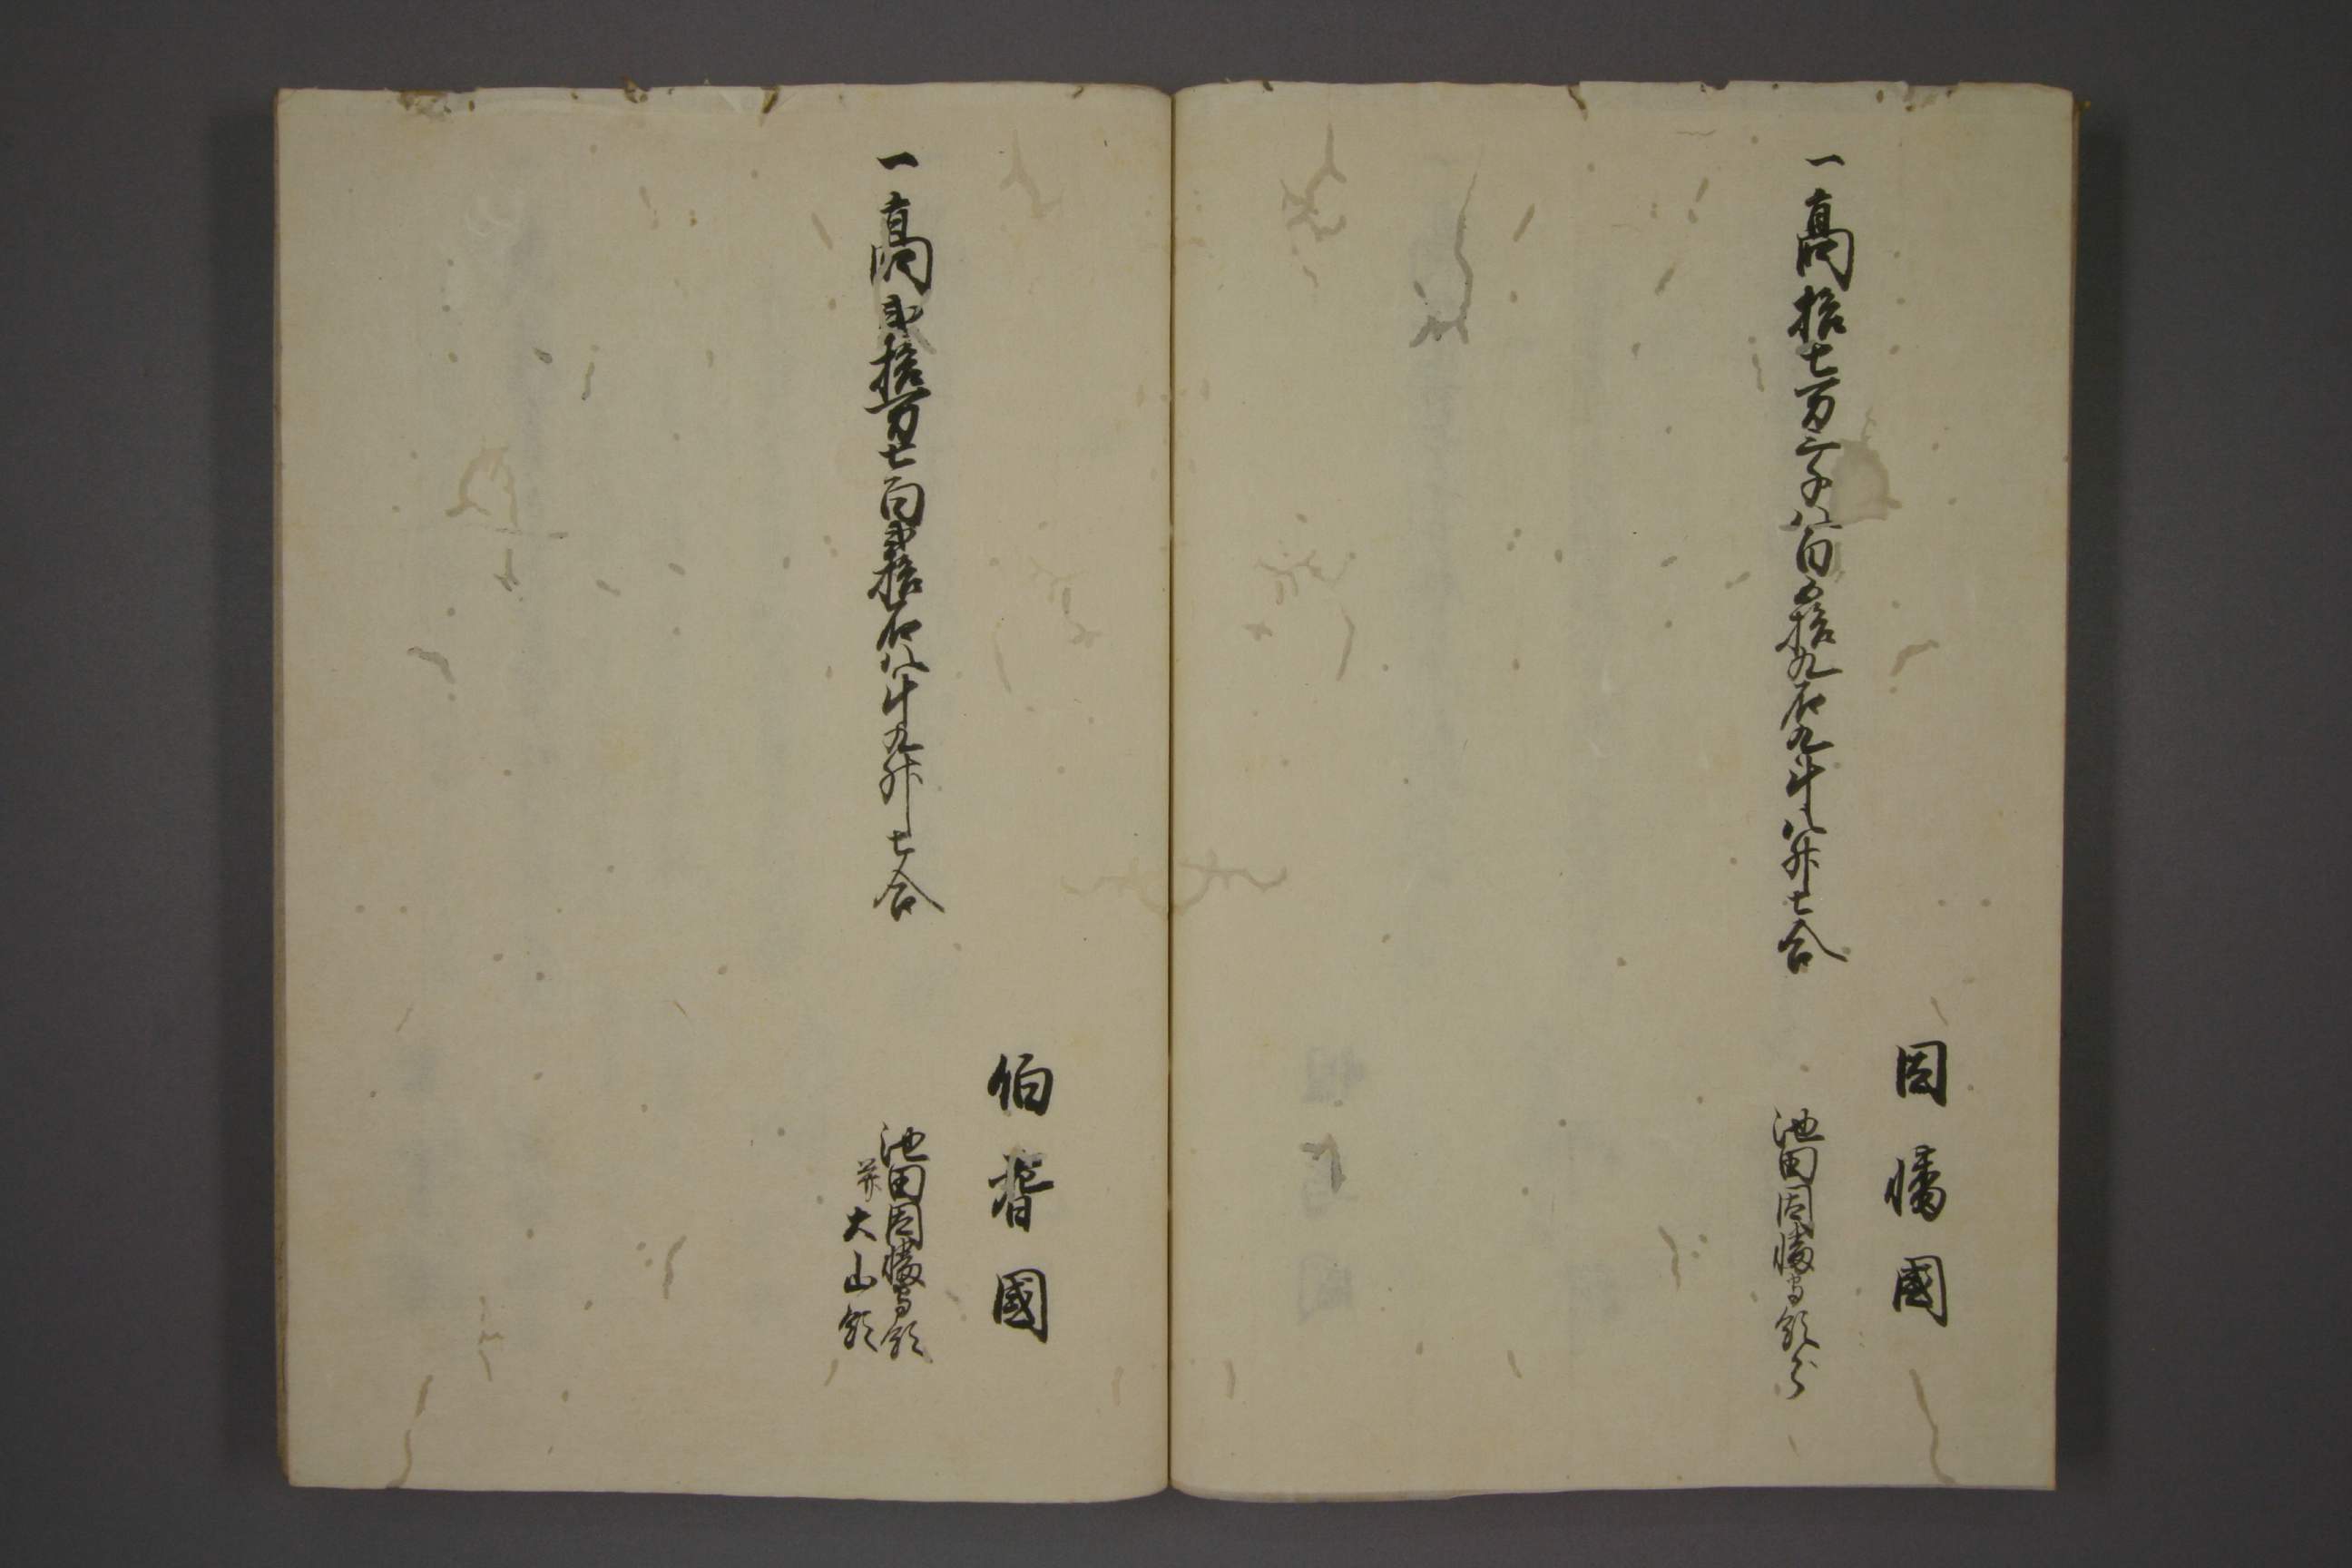 因幡國
一高拾七万三千八百五拾九石九斗八升七合
池田因幡守領分
伯耆國
一高弐拾万七百弐拾石八斗九升七合
池田因幡守領
并大山領